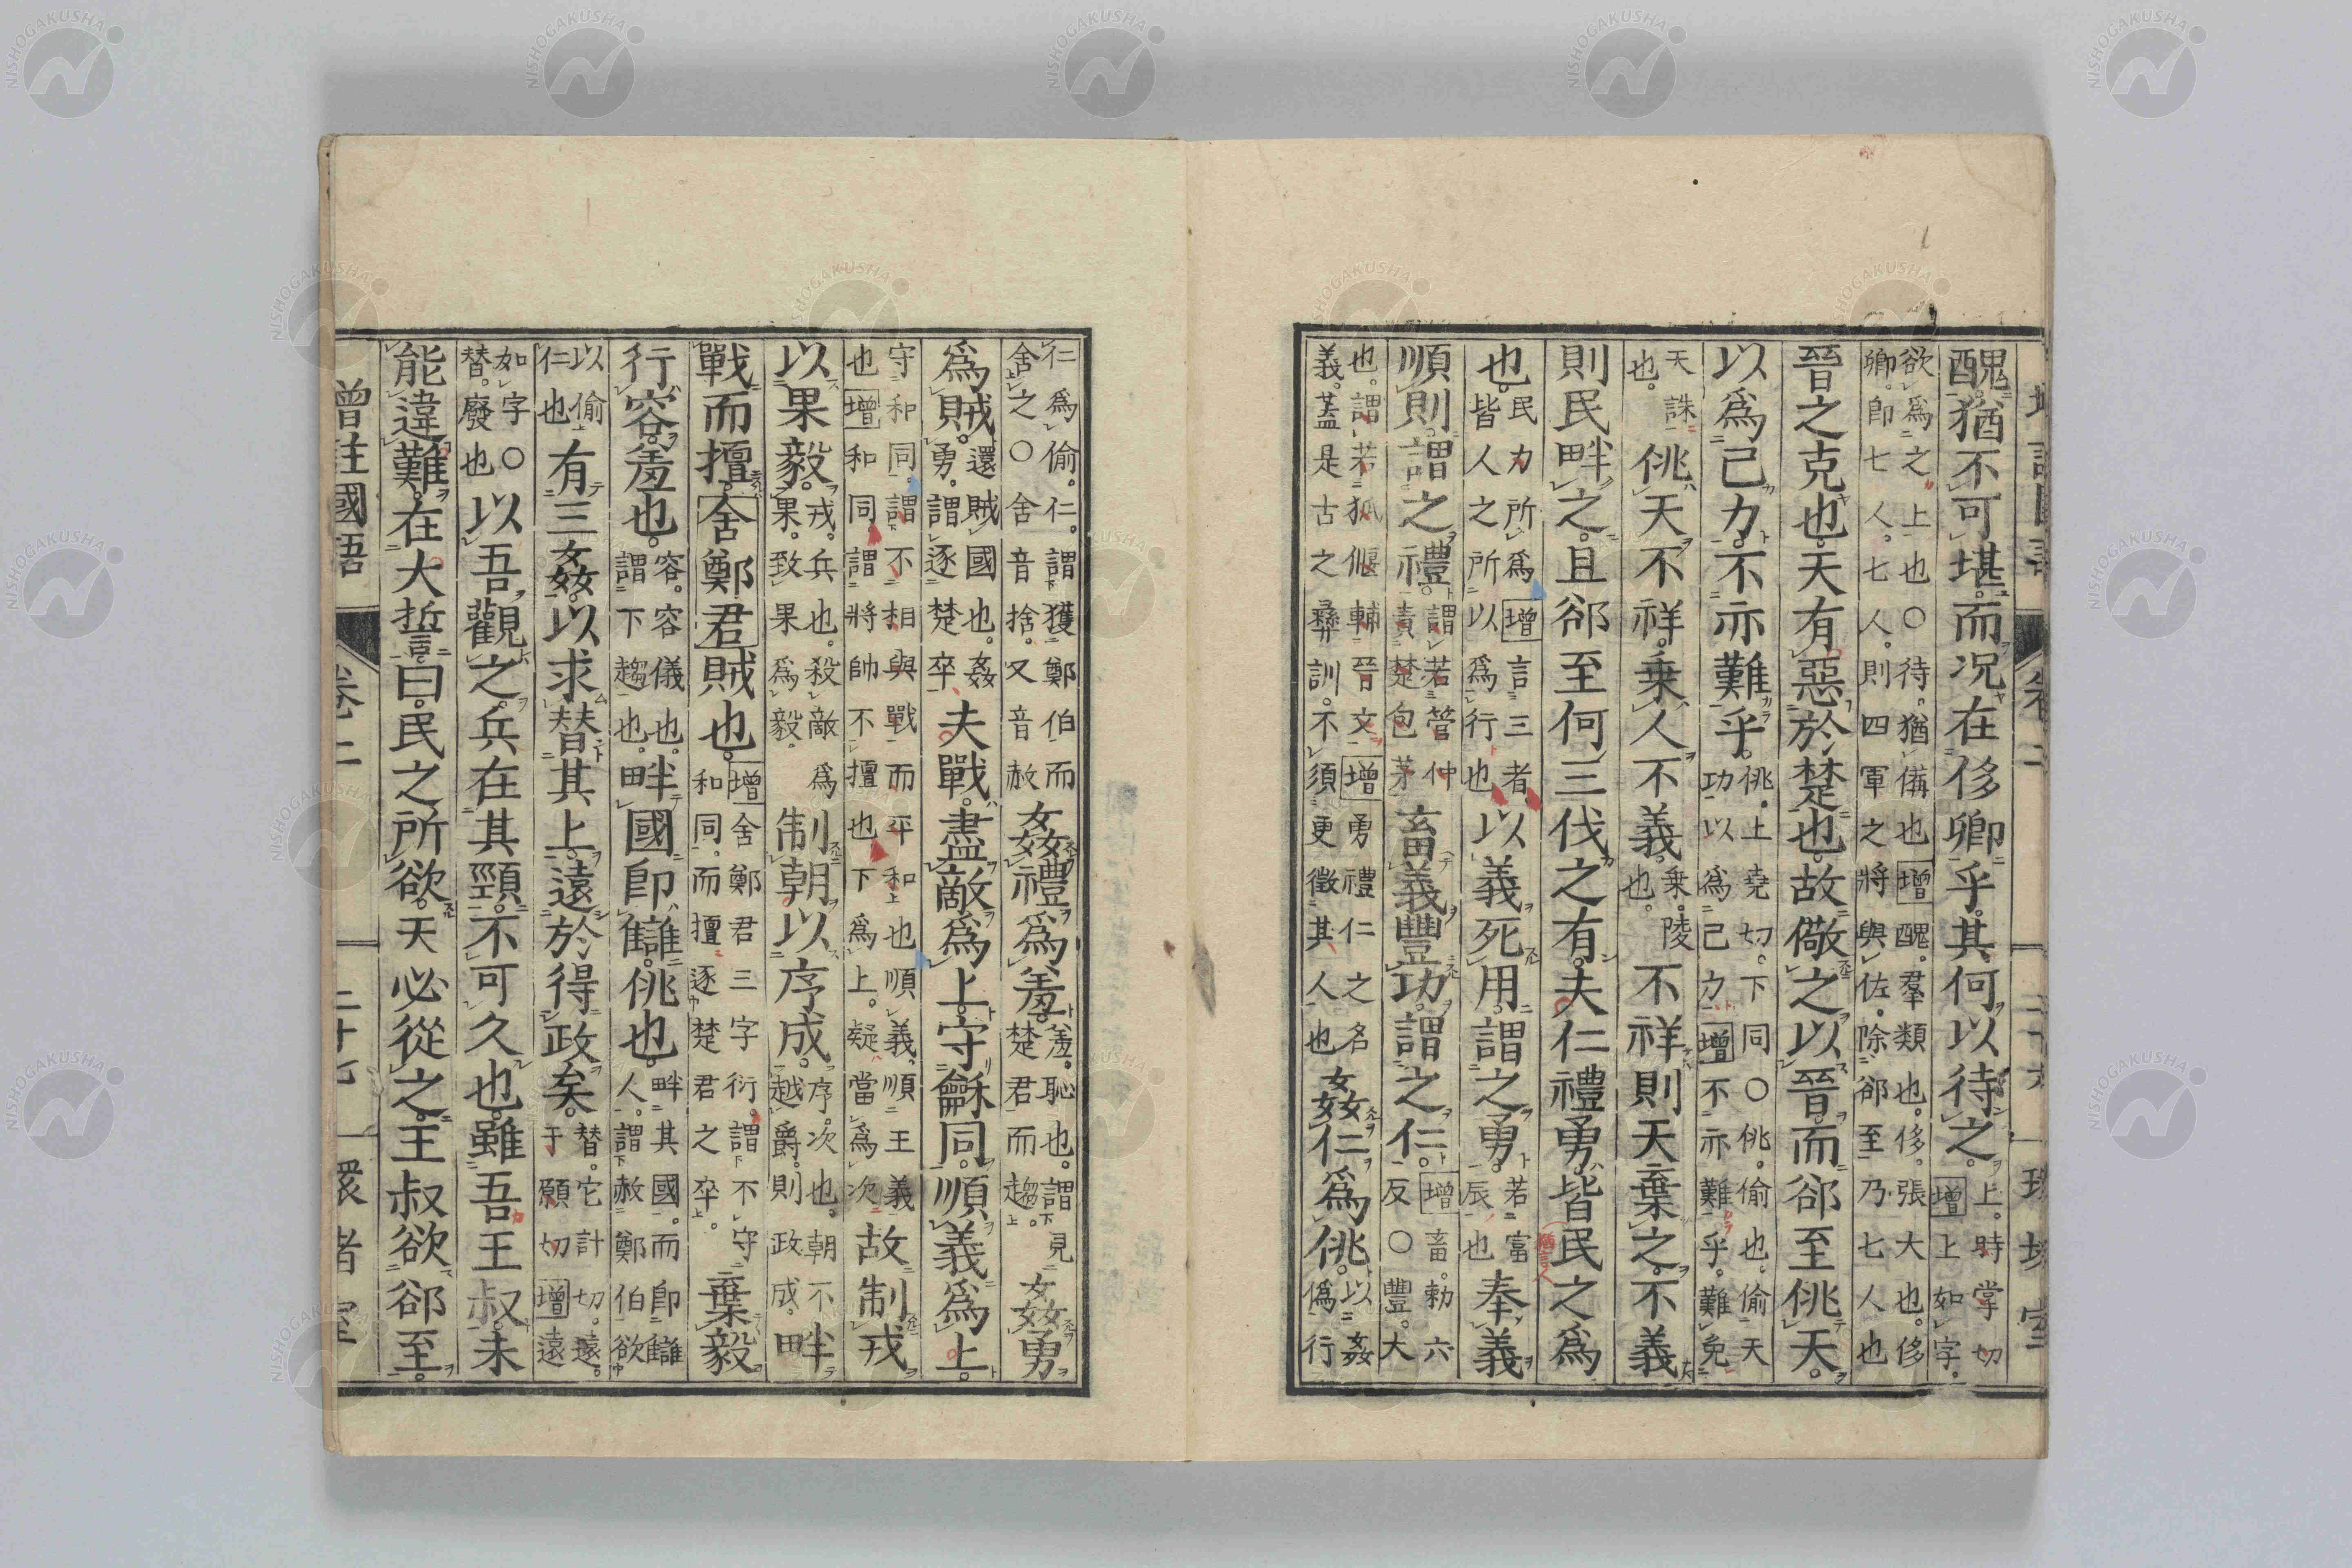 醜。猶不可堪。而况在侈卿乎。其何以待之。
上。時掌切
增上如字。
欲爲之上也○待。猶備也增醜。羣類也。侈。張大也。侈
卿。卽七人。七人。則四軍之將與佐。除郤至乃七人也
晉之克也。天有惡於楚也。故儆之以晉。而郤至佻天。
以爲己力。不亦難乎。
佻。土堯切。下同○佻。偷也。偷天
功以爲己力增不亦難乎。難免
天誅
也。
佻天不祥。乘人不義。
乘。陵
也。
不祥則天棄之。不義
則民畔之。且郤至何三伐之有。夫仁禮勇。皆民之爲
也。
民力所爲增言三者
皆人之所以爲行也
以義死用。謂之勇。
若富
辰也
奉義
順則謂之禮。
謂若管仲
責楚包茅
畜義豐功。謂之仁。
增畜。勅六
反○豐。大
也。謂若狐偃輔晉文增勇禮仁之名
義。蓋是古之彝訓。不須更徵其人也
姦仁爲佻。
以姦
僞行
仁爲偷。仁。謂獲鄭伯而
舍之○舍音捨。又音赦
姦禮爲羞。
羞。恥也。謂見
楚君而趨。
姦勇
爲賊。
還賊國也。姦
勇。謂逐楚卒
夫戰。盡敵爲上。守龢同。順義爲上。
守和同。謂不相與戰而平和也順義。順王義
也增和同謂將帥不擅也下爲上。疑當爲次
故制戎
以果毅。
戎。兵也。殺敵爲
果。致果爲毅。
制朝以序成。
序。次也。朝不
越爵。則政成。
畔
戰而擅。舍鄭君賊也。
增舍鄭君三字衍。謂不守
和同。而擅逐楚君之卒。
棄毅
行容。羞也。
容。容儀也。
謂下趨也。
畔國卽讎。佻也。
畔其國。而卽讎
人。謂赦鄭伯欲
以偷
仁也
有三姦。以求替其上。遠於得政矣。
替。它計切。遠。
于願切增遠
如字○
替。廢也
以吾觀之。兵在其頸。不可久也。雖吾王叔。未
能違難。在大誓曰。民之所欲。天必從之。王叔欲郤至。
增註國語
卷二
二十七